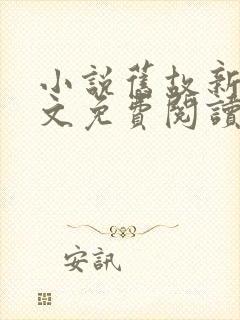 小說舊故新
文免費閱讀
安訊